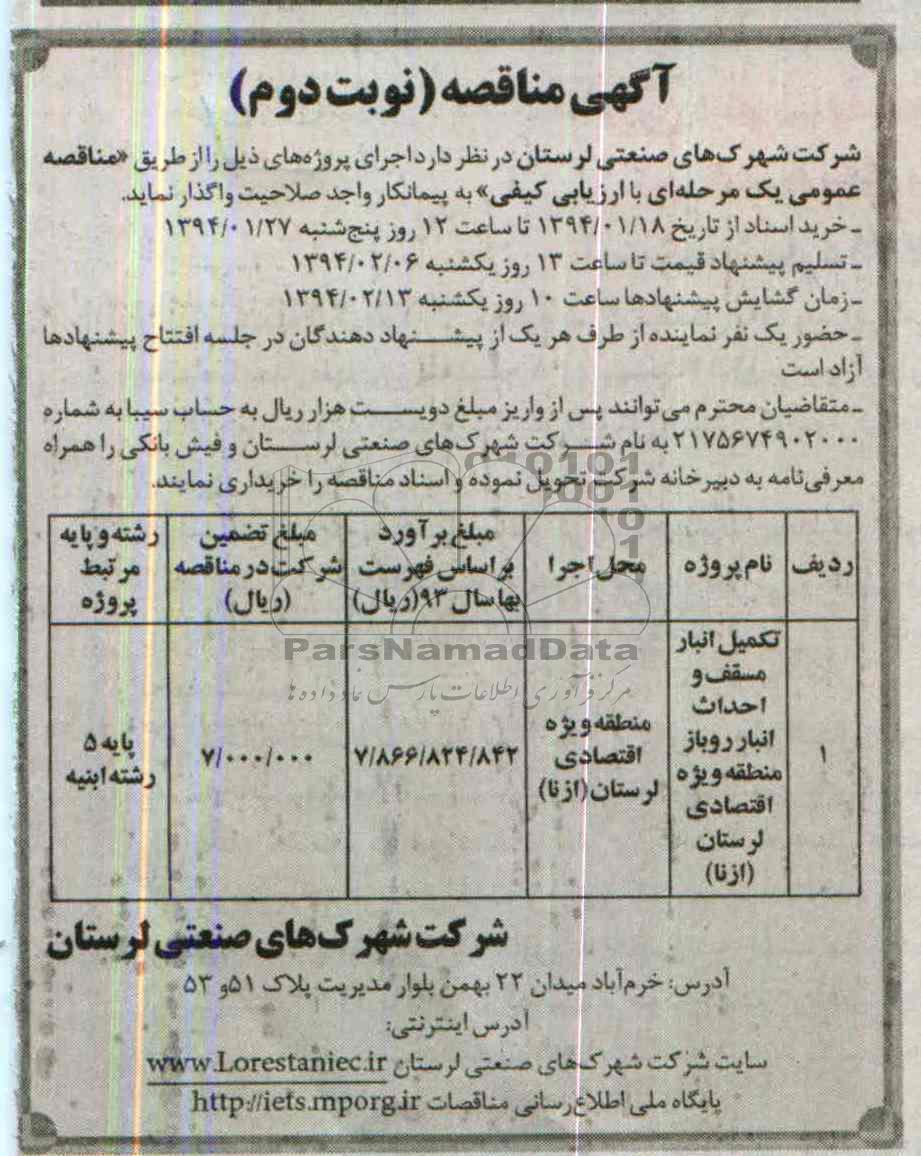 آگهی مناقصه (نوبت دوم)
شرکت شهرک‌های صنعتی لرستان در نظر دارد اجرای پروژه‌های ذیل را از طریق «مناقصه
عمومی یک مرحله‌ای با ارزیابی کیفی» به پیمانکار واجد صلاحیت واگذار نماید.
ـ خرید اسناد از تاریخ ۱۳۹۴/۰۱/۱۸ تا ساعت ۱۲ روز پنج‌شنبه ۱۳۹۴/۰۱/۲۷
ـ تسلیم پیشنهاد قیمت تا ساعت ۱۳ روز یکشنبه ۱۳۹۴/۰۲/۰۶
ـ زمان گشایش پیشنهادها ساعت ۱۰ روز یکشنبه ۱۳۹۴/۰۲/۱۳
ـ حضور یک نفر نماینده از طرف هر یک از پیشنهاد دهندگان در جلسه افتتاح پیشنهادها
آزاد است
ـ متقاضیان محترم می‌توانند پس از واریز مبلغ دویست هزار ریال به حساب سیبا به شماره
۲۱۷۵۶۷۴۹۰۲۰۰۰ به نام شرکت شهرک‌های صنعتی لرستان و فیش بانکی را همراه
معرفی‌نامه به دبیرخانه شرکت تحویل نموده و اسناد مناقصه را خریداری نمایند.
ردیف
نام پروژه
محل اجرا
مبلغ برآورد
براساس فهرست
بها سال ۹۳(ریال)
مبلغ تضمین
شرکت در مناقصه
(ریال)
رشته و پایه
مرتبط
پروژه
۱
تکمیل انبار
مسقف و
احداث
انبار روباز
منطقه ویژه
اقتصادی
لرستان
(ازنا)
منطقه ویژه
اقتصادی
لرستان(ازنا)
۷/۸۶۶/۸۲۴/۸۴۲
۷/۰۰۰/۰۰۰
پایه ۵
رشته ابنیه
ParsNamadData
مرکز فرآوری اطلاعات پارس نماد داده ها
شرکت شهرک‌های صنعتی لرستان
آدرس: خرم‌آباد میدان ۲۲ بهمن بلوار مدیریت پلاک ۵۱و ۵۳
آدرس اینترنتی:
سایت شرکت شهرک‌های صنعتی لرستان www.Lorestaniec.ir
پایگاه ملی اطلاع‌رسانی مناقصات http://iets.mporg.ir